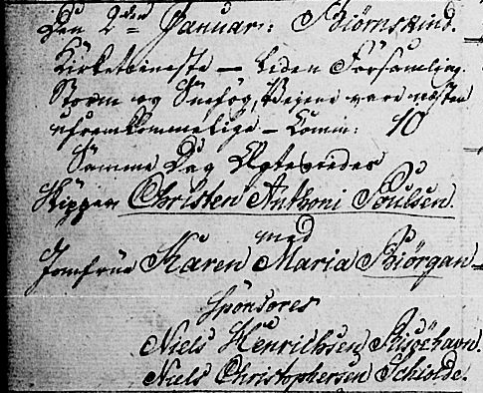 Den 2den Januar: Biörnskind.
Kirketieneste – Liden Forsamling.
Storm og Sneefög, Veiene vare næsten
ufremkommelige – Comm: 10
Samme Dag Ægteviedes
Skipper Christen Anthoni Poulsen.
med
Jomfrue Karen Maria Biörgan
Sponsores
Niels Henrichsen
Niels Christophersen Schielde.